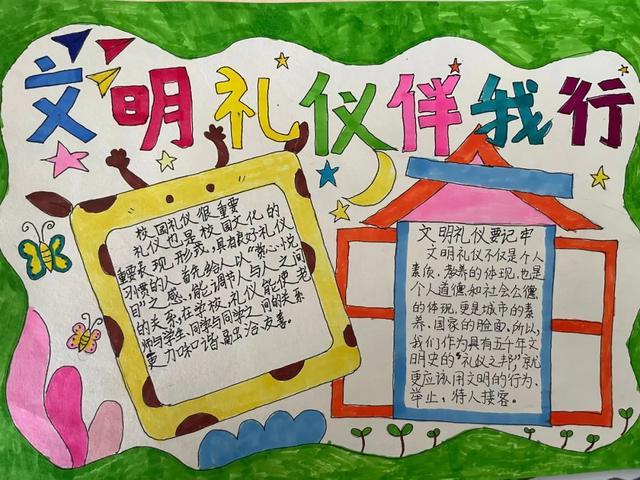 文明礼仪伴我行
校园礼仪很重要
礼仪也是校园文化的
重要表现形式,具有良好礼仪
习惯的人,首先给人以“赏心悦
目”之感,能调节人与人之间
的关系,在学校,礼仪能使老
师与学生同学与同学之间的关系
更加和谐融洽友善。
文明礼仪要记牢
文明礼仪不仅是个人
素质、教养的体现,也是
个人道德和社会公德
的体现,更是城市的素
养、国家的脸面。所以,
我们作为具有五千年文
明史的“礼仪之邦”,就
更应该用文明的行为、
举止,待人接客。